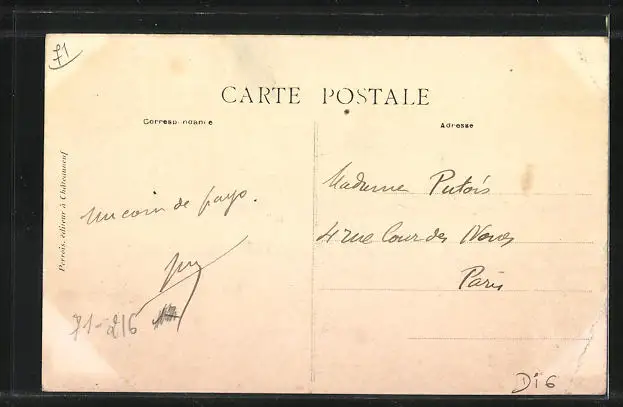 71
CARTE POSTALE
Correspondance
Adresse
Perrois, éditeur à Châteauneuf
Un coin de pays.
Madame Putois
4 rue Cour des Noues
Paris
71-216
Di6